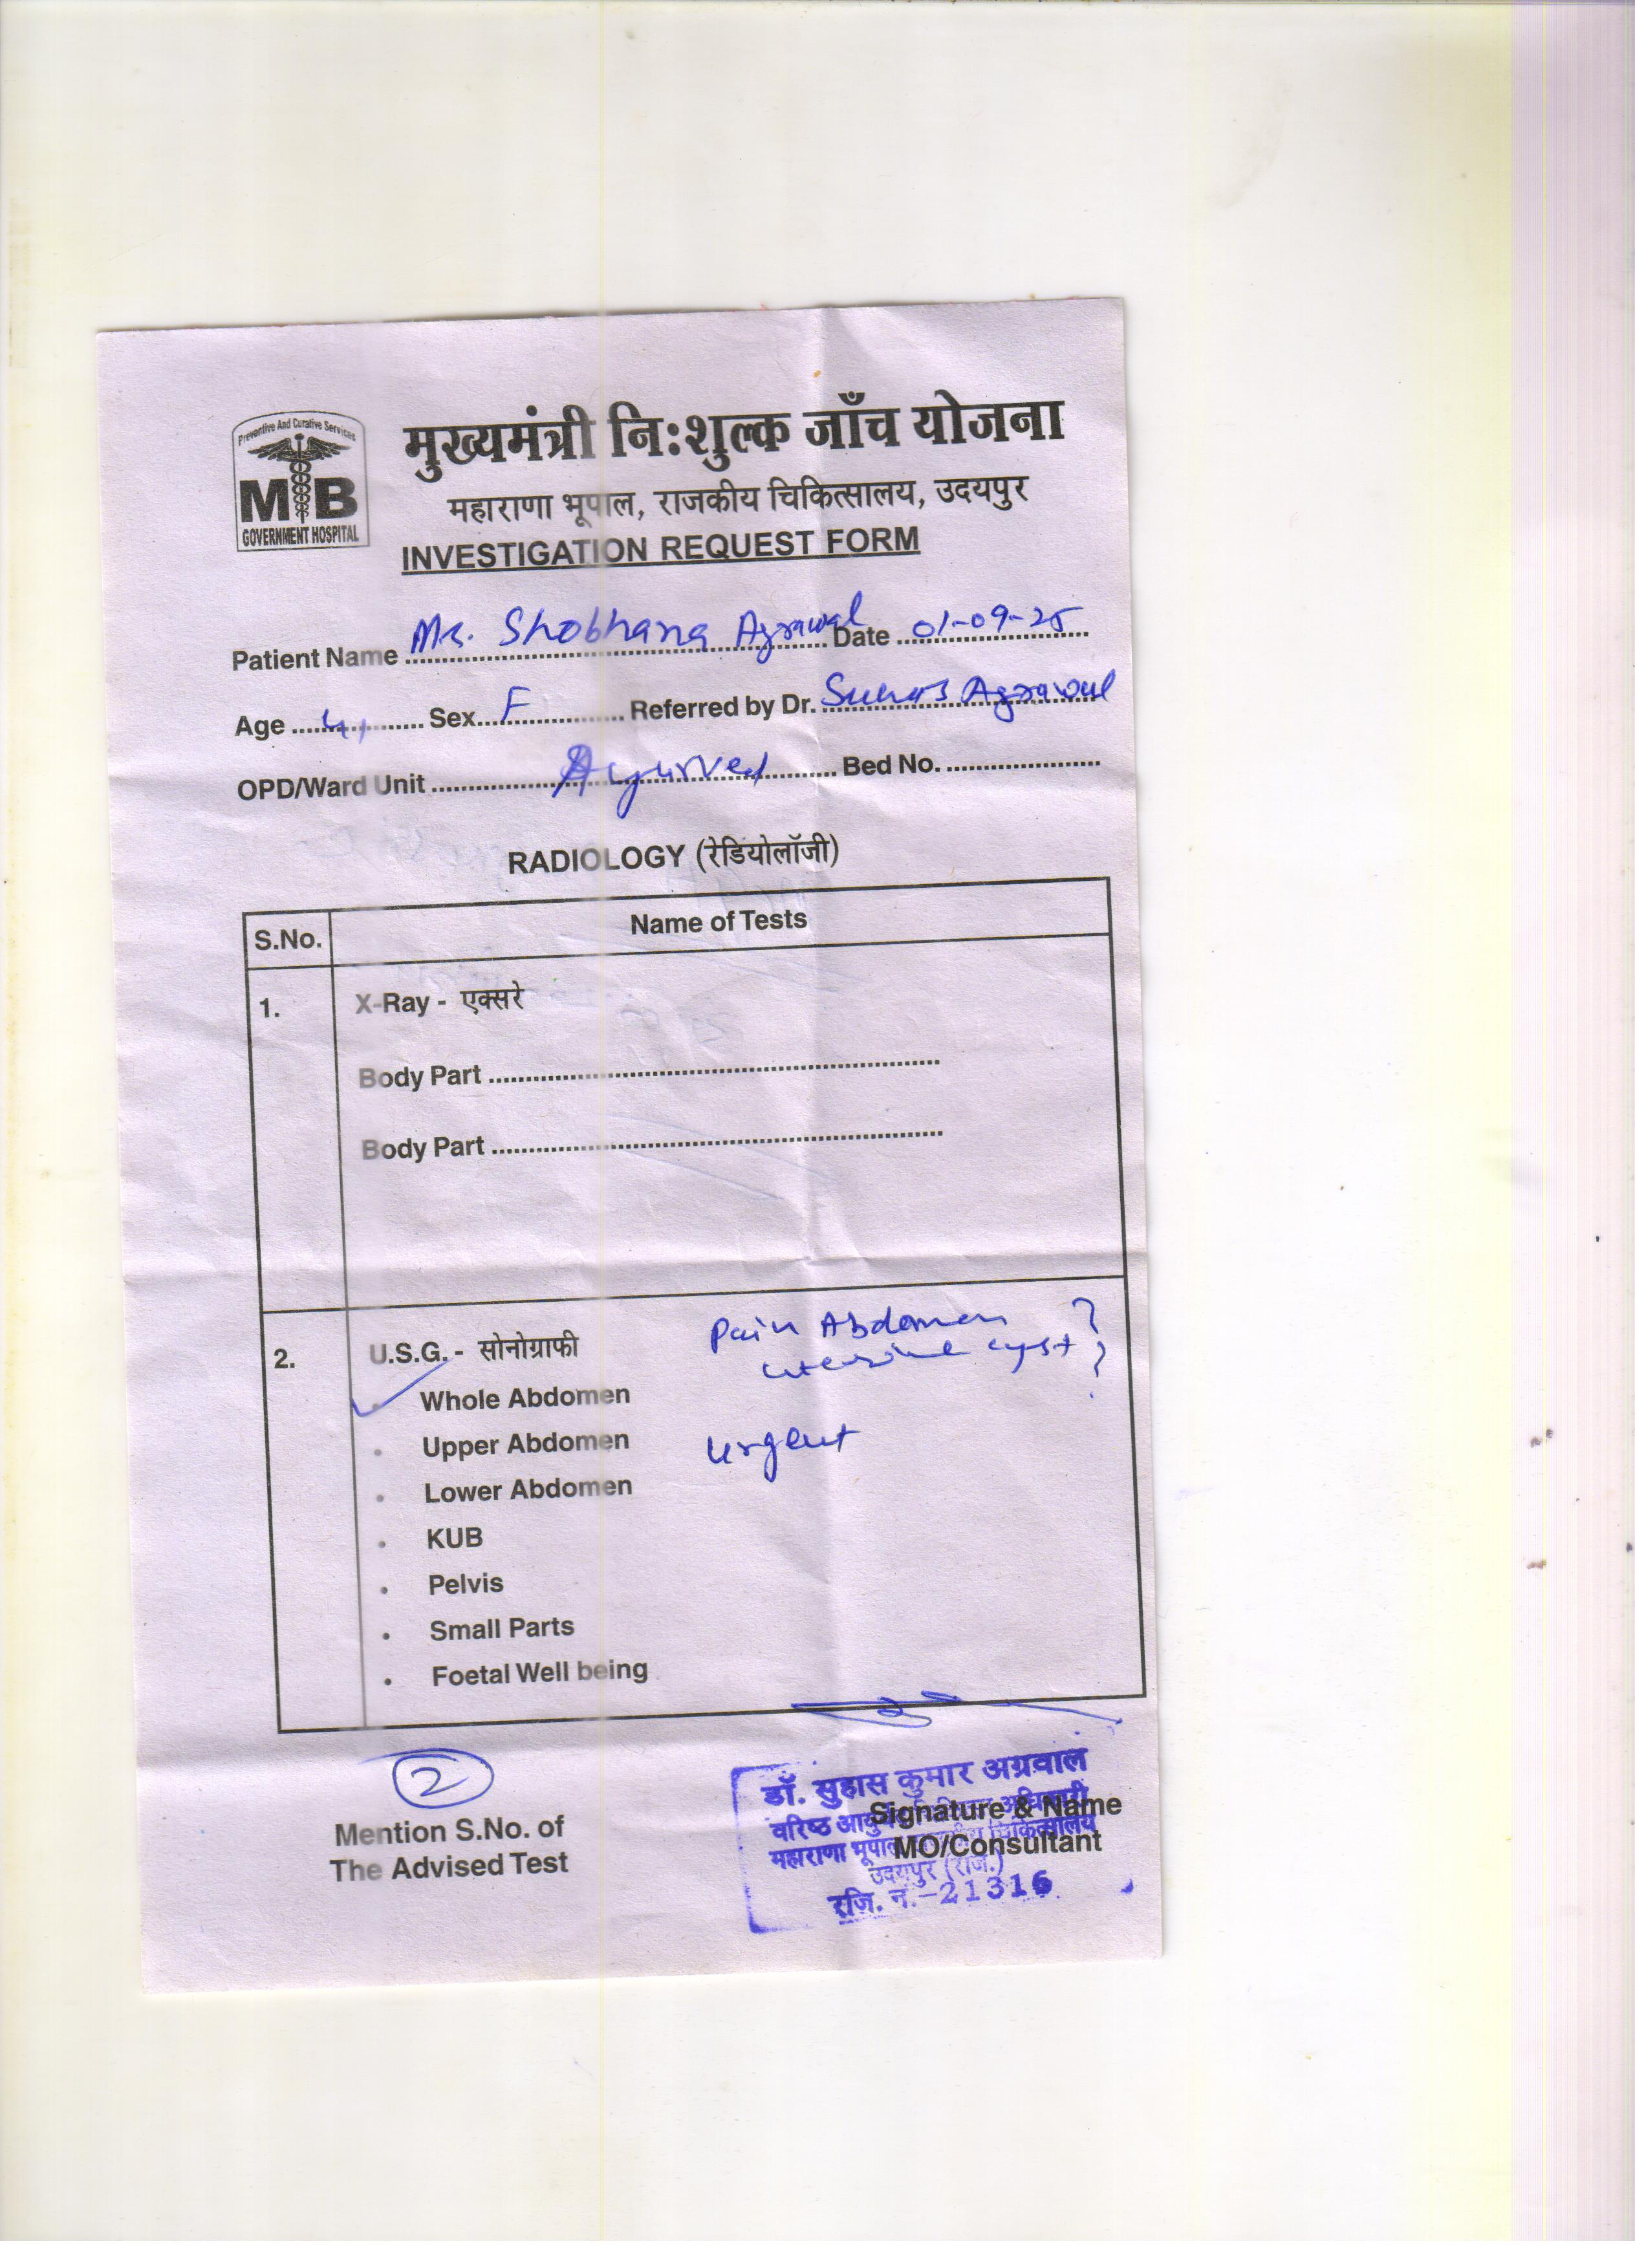 Preventive And Curative Services
MB
GOVERNMENT HOSPITAL
मुख्यमंत्री नि:शुल्क जाँच योजना
महाराणा भूपाल, राजकीय चिकित्सालय, उदयपुर
INVESTIGATION REQUEST FORM
Patient Name Mrs. Shobhana Agrawal Date 01-09-25
Age Sex F Referred by Dr. Suhas Agrawal
OPD/Ward Unit Ayurved Bed No.
RADIOLOGY (रेडियोलॉजी)
S.No. Name of Tests
1. X-Ray - एक्सरे
Body Part
Body Part
2. U.S.G. - सोनोग्राफी Pain Abdomen ?
uterine cyst ?
Whole Abdomen
Upper Abdomen urgent
Lower Abdomen
KUB
Pelvis
Small Parts
Foetal Well being
2
Mention S.No. of
The Advised Test
डॉ. सुहास कुमार अग्रवाल
वरिष्ठ अधिकारी
Signature & Name
महाराणा भूपाल चिकित्सालय
MO/Consultant
उदयपुर (राज.)
रजि. नं.-21316